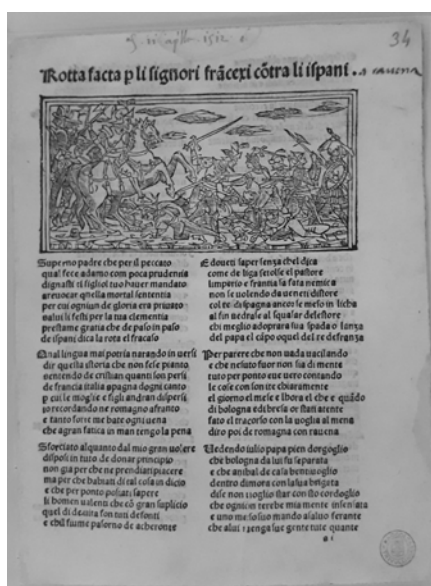 34
Rotta facta p li signori frãcexi cõtra li ispani
Superno padre che per il peccato
qual fece adamo com poca prudentia
dignasti il figliol tuo hauer mandato
areuocar quella mortal sententia
per cui ogniun de gloria era priuato
prestame gratia che de paso in paso
de ispani dica la rota el fracaso
Qual lingua mai potria narando in uersi
dir questa istoria che non fese pianto
uentendo de cristian quanti son persi
de francia italia spagna dogni canto
p cui le moglie e figli andran dispersi
recordando ne romagno afranto
e tanto forte me bate ogni uena
che agran fatica in man tengo la pena
Sforciato alquanto dal mio gran uolere
disposi in tuto de donar principio
non gia per che ne prendiati piacere
ma per che babiati di tal cosa in dicio
e che per ponto posiati sapere
li homen ualenti che cõ gran suplicio
quel di de uita son tuti defonti
E doueti saper senza chel dica
come de liga sciolse el pastore
limperio e francia fa fata nemica
non se uolendo da ueneti distore
col re di spagna ancor se messo in
al fin uedrase al squasar delestore
chi meglio adoprara sua spada o lanza
del papa el cãpo oquel del re de franza
Per parere che non uada uacilando
e che nesuto fuor non sia di mente
tuto per ponto uue uero contando
le cose con son ite chiaramente
il giorno el mese e lhora el che e quãdo
di bologna ed bresia or stati atente
fato el tracorso con la uoglia al mena
diro poi de romagna con rauena
Uedendo iulio papa pien dorgoglio
che bologna da lui fu separata
e che anibal de casa bentiuoglio
dentro dimora con la sua brigata
dise non uoglio star con sto cordoglio
che ogniun terebe mia mente insensata
e uno messo suo mando aluiso ferante
che a lui uenga sue gente tute quante
a i